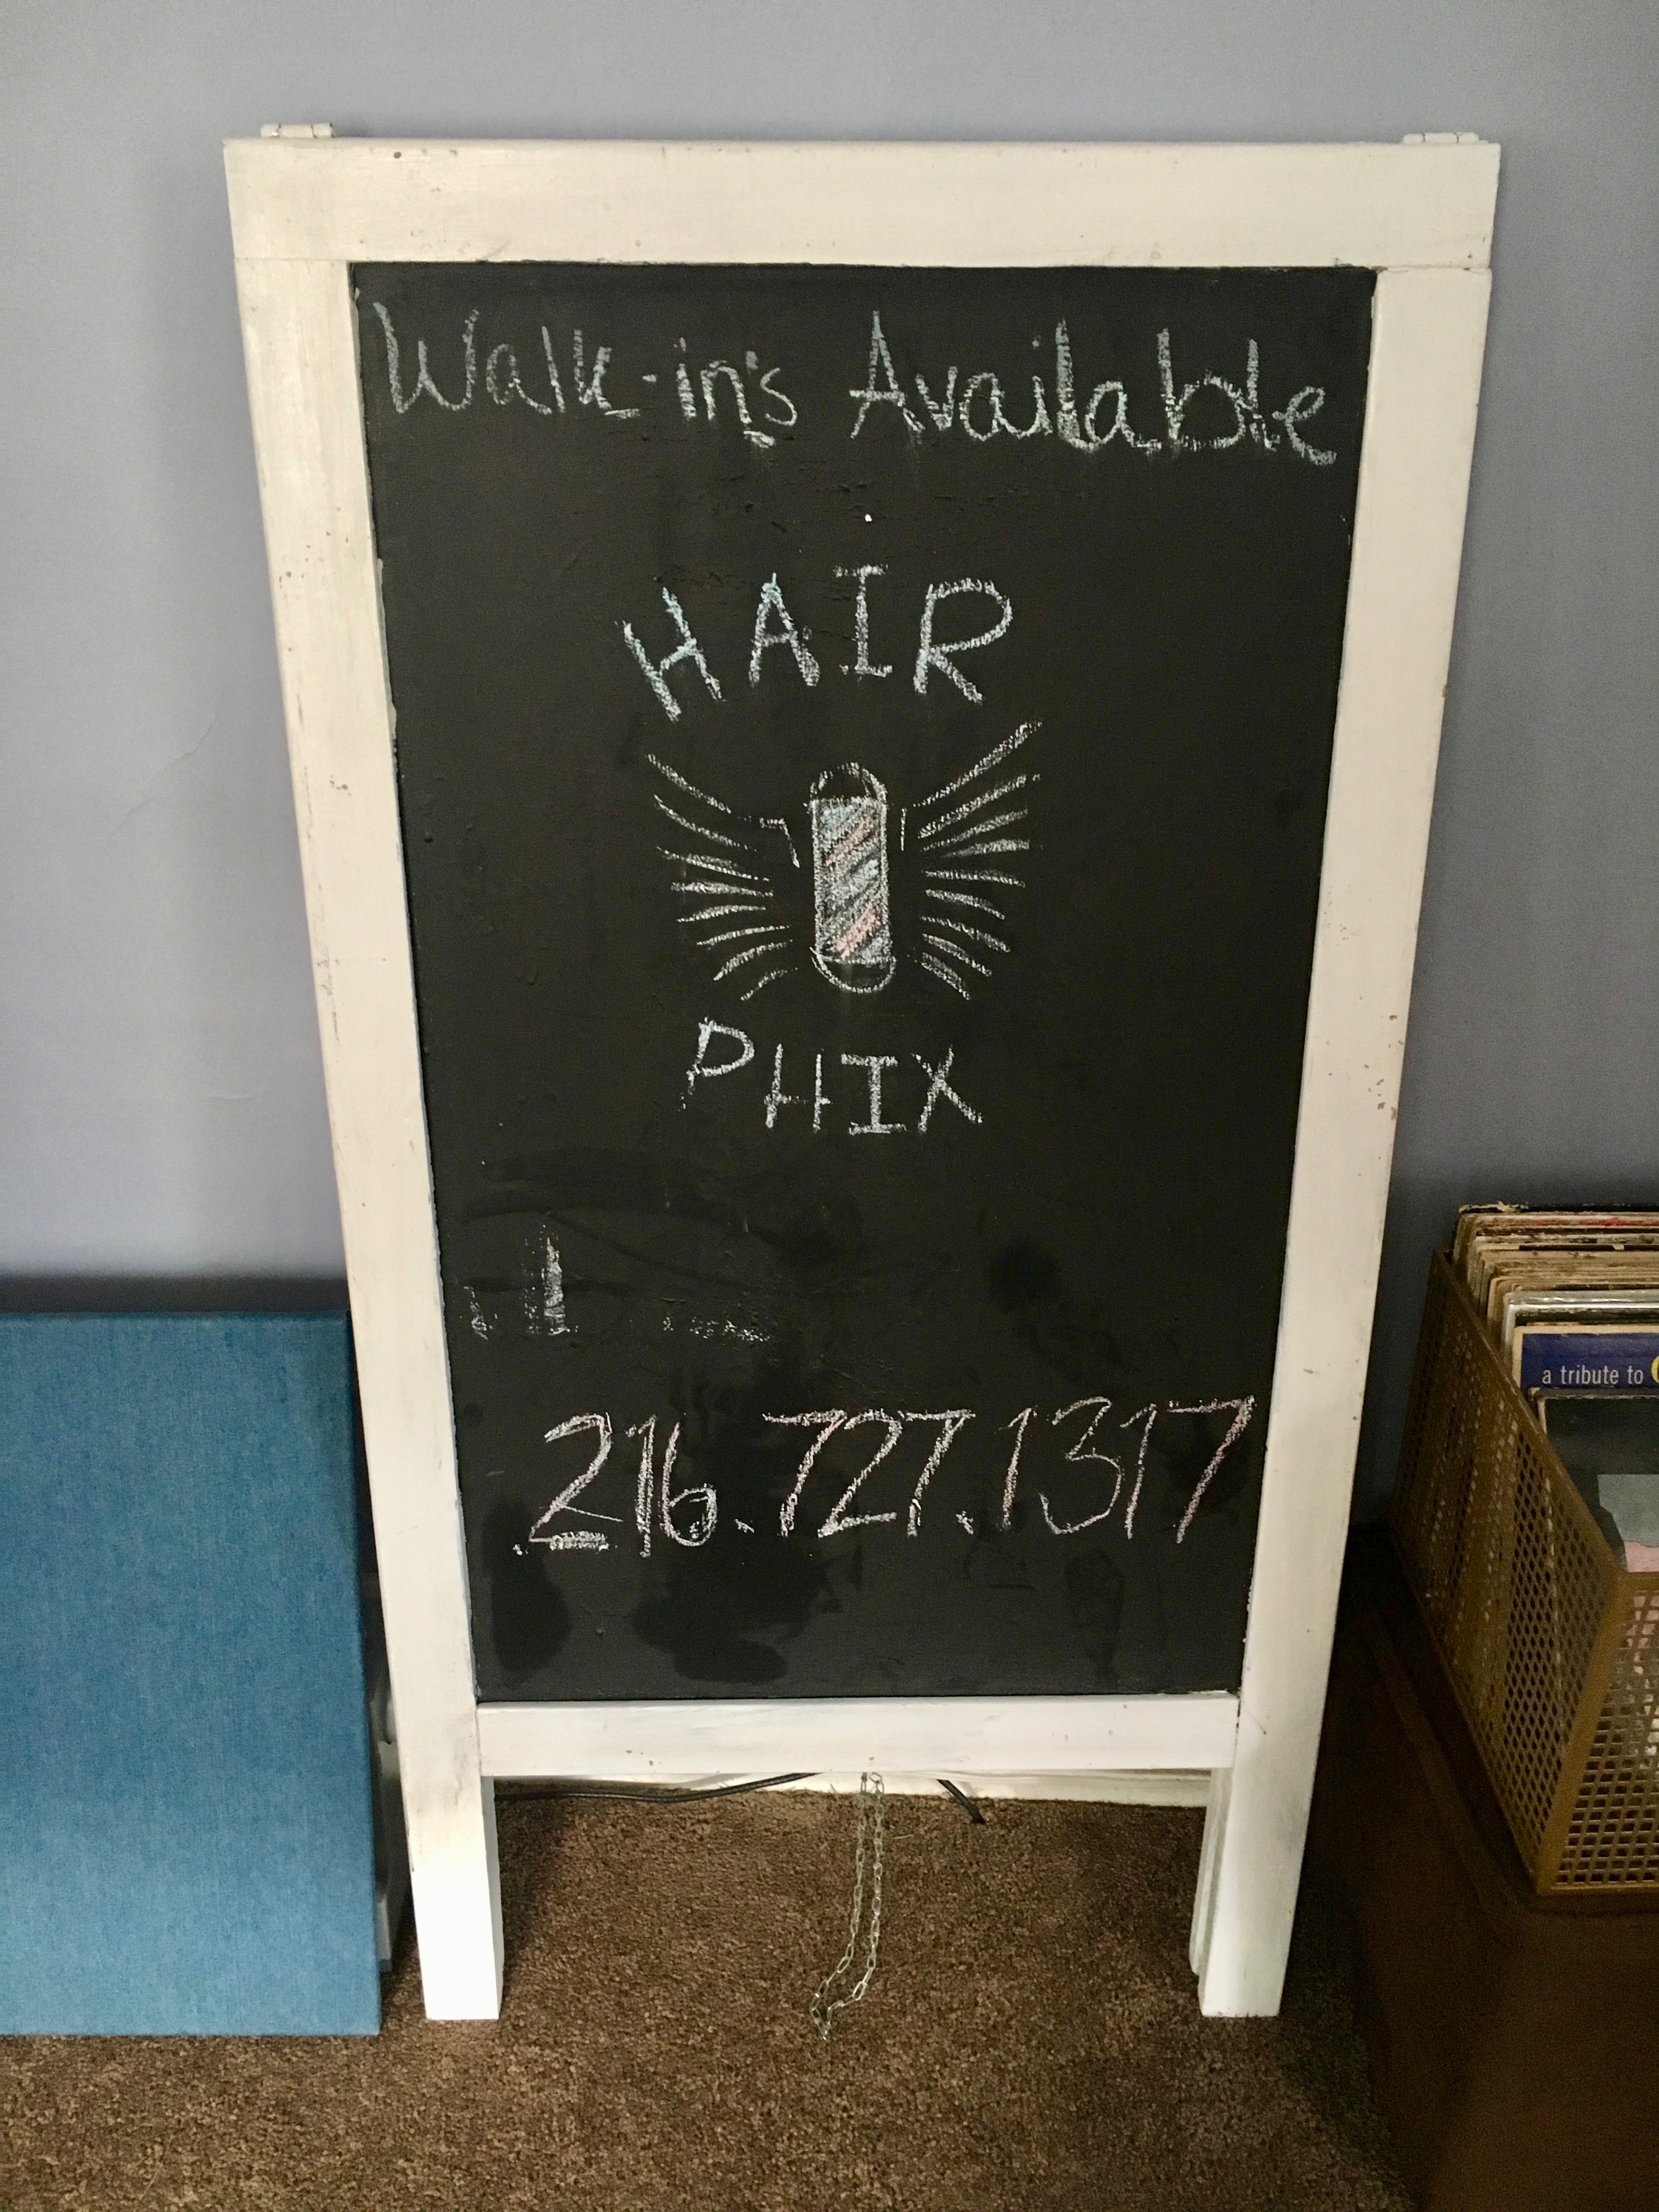 Walk-in's Available
HAIR
PHIX
216.727.1317
a tribute to